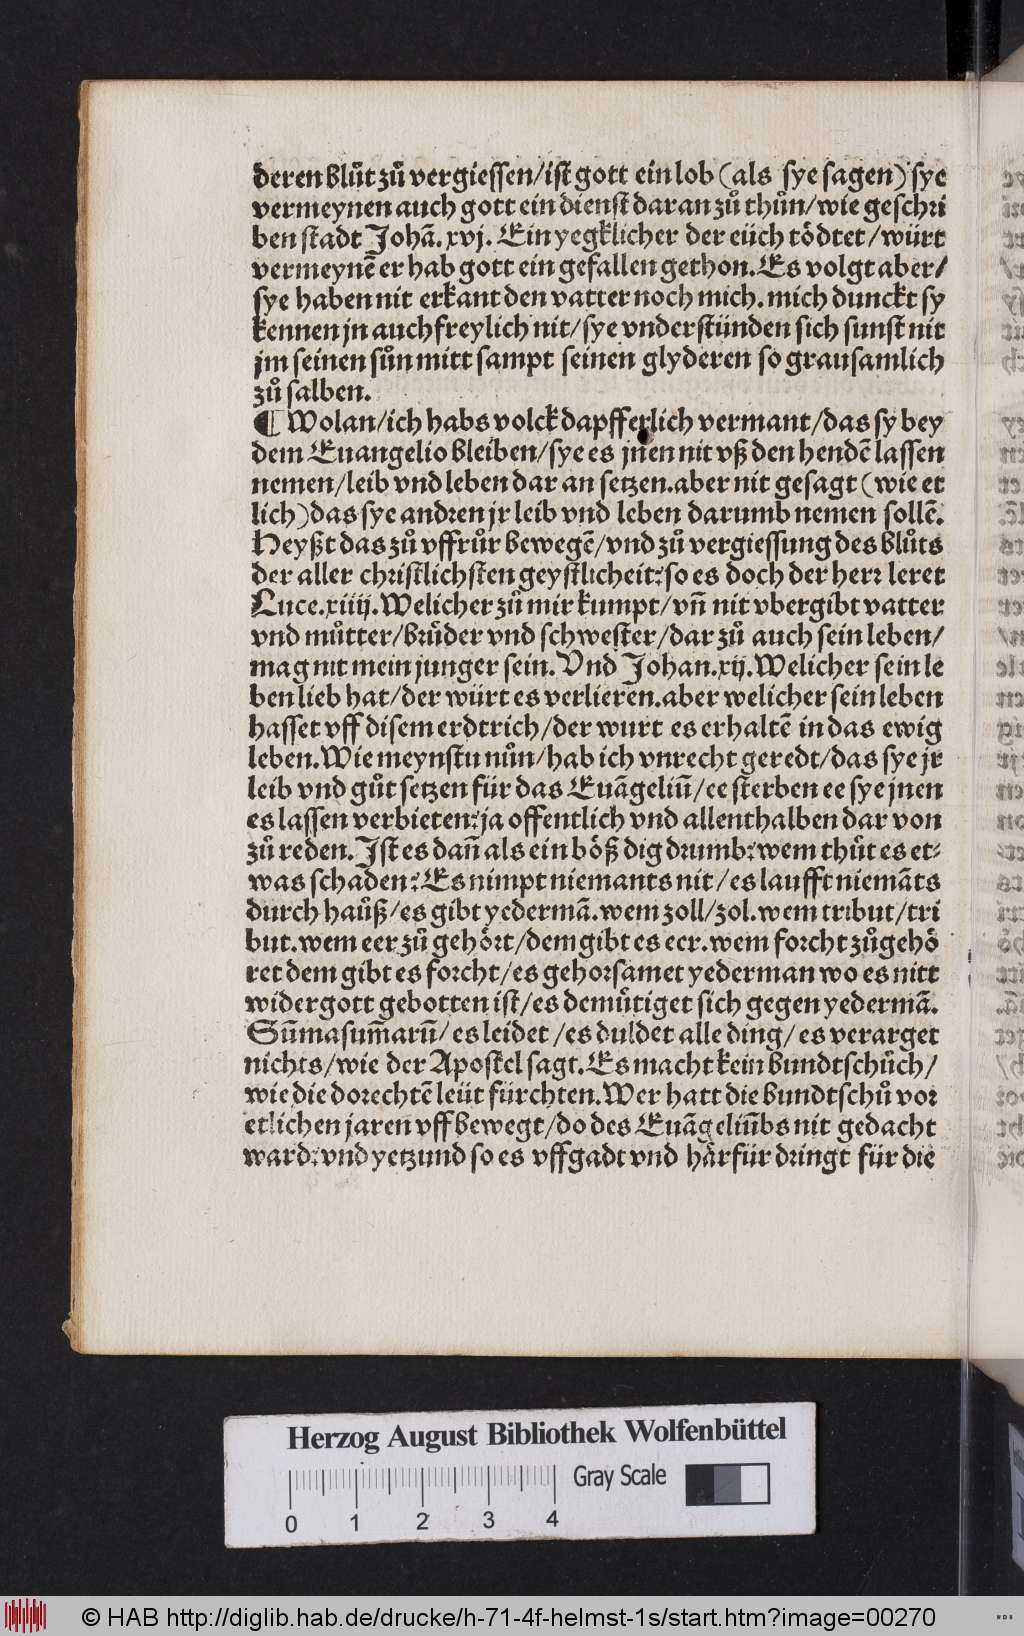 deren blůt zů vergiessen/ist gott ein lob (als sye sagen) sye
vermeynen auch gott ein dienst daran zů thůn/wie geschri
ben stadt Johã. xvj. Ein yegklicher der eüch tödtet/würt
vermeynẽ er hab gott ein gefallen gethon. Es volgt aber/
sye haben nit erkant den vatter noch mich. mich dunckt sy
kennen jn auch freylich nit/sye vnderstünden sich sunst nit
jm seinen sůn mitt sampt seinen glyderen so grausamlich
zů salben.
¶ Wolan/ich habs volck dapfferlich vermant/das sy bey
dem Euangelio bleiben/sye es jnen nit vß den hendẽ lassen
nemen/leib vnd leben dar an setzen. aber nit gesagt (wie et
lich) das sye andren jr leib vnd leben darumb nemen sollẽ.
Heyßt das zů vffrůr bewegẽ/vnd zů vergiessung des blůts
der aller christlichsten geystlicheit: so es doch der herr leret
Luce. xiiij. Welicher zů mir kumpt/vñ nit vbergibt vatter
vnd můtter/brůder vnd schwester/dar zů auch sein leben/
mag nit mein junger sein. Vnd Johan. xij. Welicher sein le
ben lieb hat/der würt es verlieren. aber welicher sein leben
hasset vff disem erdtrich/der wurt es erhaltẽ in das ewig
leben. Wie meynstu nůn/hab ich vnrecht geredt/das sye jr
leib vnd gůt setzen für das Euãgeliũ/ee sterben ee sye jnen
es lassen verbieten: ja offentlich vnd allenthalben dar von
zů reden. Ist es dañ als ein bȯß dig drumb: wem thůt es et⸗
was schaden: Es nimpt niemants nit/es laufft niemãts
durch haůß/es gibt yedermã. wem zoll/zol. wem tribut/tri
but. wem eer zů gehört/dem gibt es eer. wem forcht zůgehö
ret dem gibt es forcht/es gehorsamet yederman wo es nitt
wider gott gebotten ist/es demůtiget sich gegen yedermã.
Sũma sum̃arũ/es leidet/es duldet alle ding/es verarget
nichts/wie der Apostel sagt. Es macht kein bundtschůch/
wie die dorechtẽ leüt fürchten. Wer hatt die bundtschů vor
etlichen jaren vff bewegt/do des Euãgeliũbs nit gedacht
ward: vnd yetzund so es vffgadt vnd härfür dringt für die
Herzog August Bibliothek Wolfenbüttel
Gray Scale
0 1 2 3 4
© HAB http://diglib.hab.de/drucke/h-71-4f-helmst-1s/start.htm?image=00270